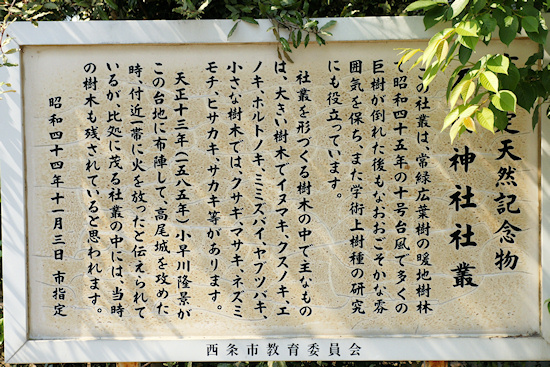 定天然記念物
神社社叢
の社叢は、常緑広葉樹の暖地樹林
で昭和四十五年の十号台風で多くの
巨樹が倒れた後もなおおごそかな雰
囲気を保ち、また学術上樹種の研究
にも役立っています。
社叢を形づくる樹木の中で主なもの
は、大きい樹木でイヌマキ、クスノキ、エ
ノキ、ホルトノキ、ミミズバイ、ヤブツバキ、
小さな樹木では、クサギ、マサキ、ネズミ
モチ、ヒサカキ、サカキ等があります。
天正十三年(一五八五年)小早川隆景が
この台地に布陣して、高尾城を攻めた
時、付近一帯に火を放ったと伝えられて
いるが、此処に茂る社叢の中には、当時
の樹木も残されていると思われます。
昭和四十四年十一月三日 市指定
西条市教育委員会